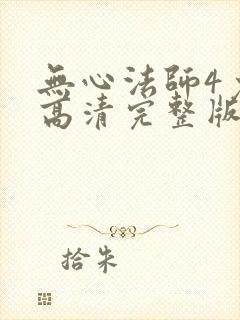 無心法師4
高清完整版
拾朱